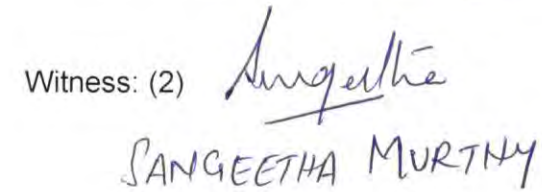 Witness: (2) Sangeetha
SANGEETHA MURTHY